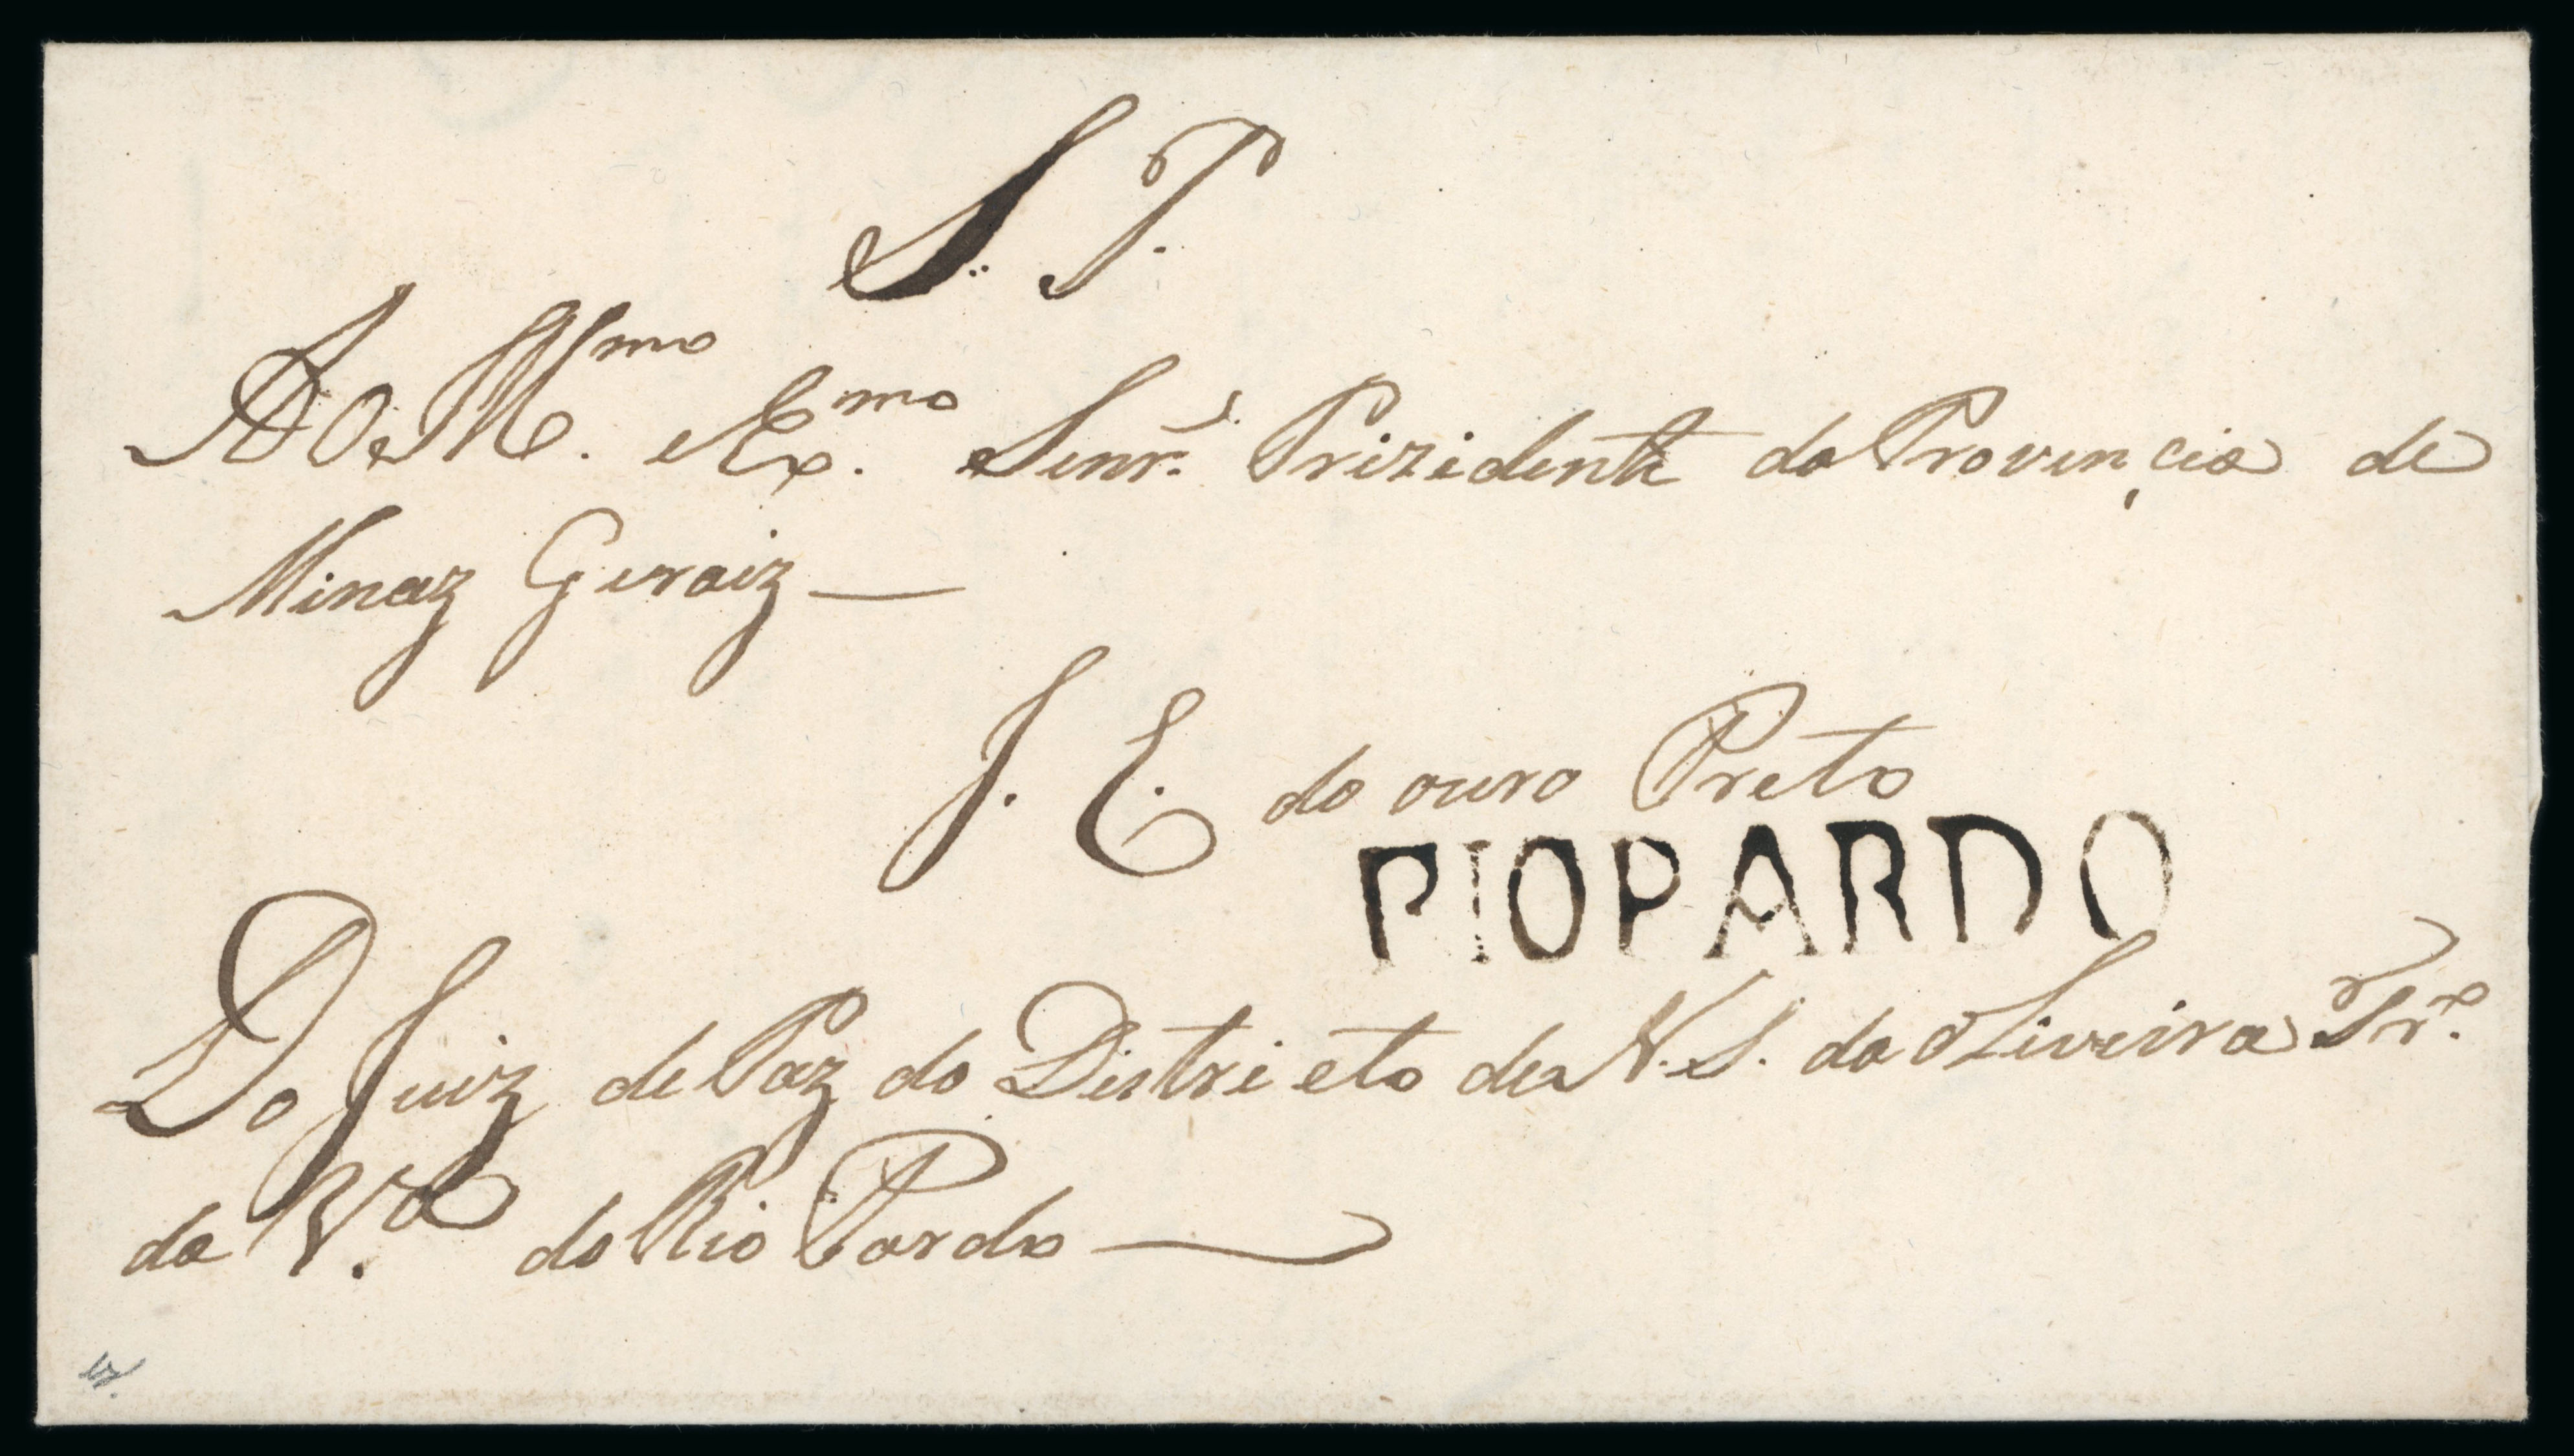 S. P.
Ao Illmo. e Exmo. Senr. Prizidente da Provinçia de
Minaz Geraiz —
I. C. do ouro Preto
RIOPARDO
Do Juiz de Paz do Districto de N. S. da oLiveira Tro.
da Va. do Rio Pardo —